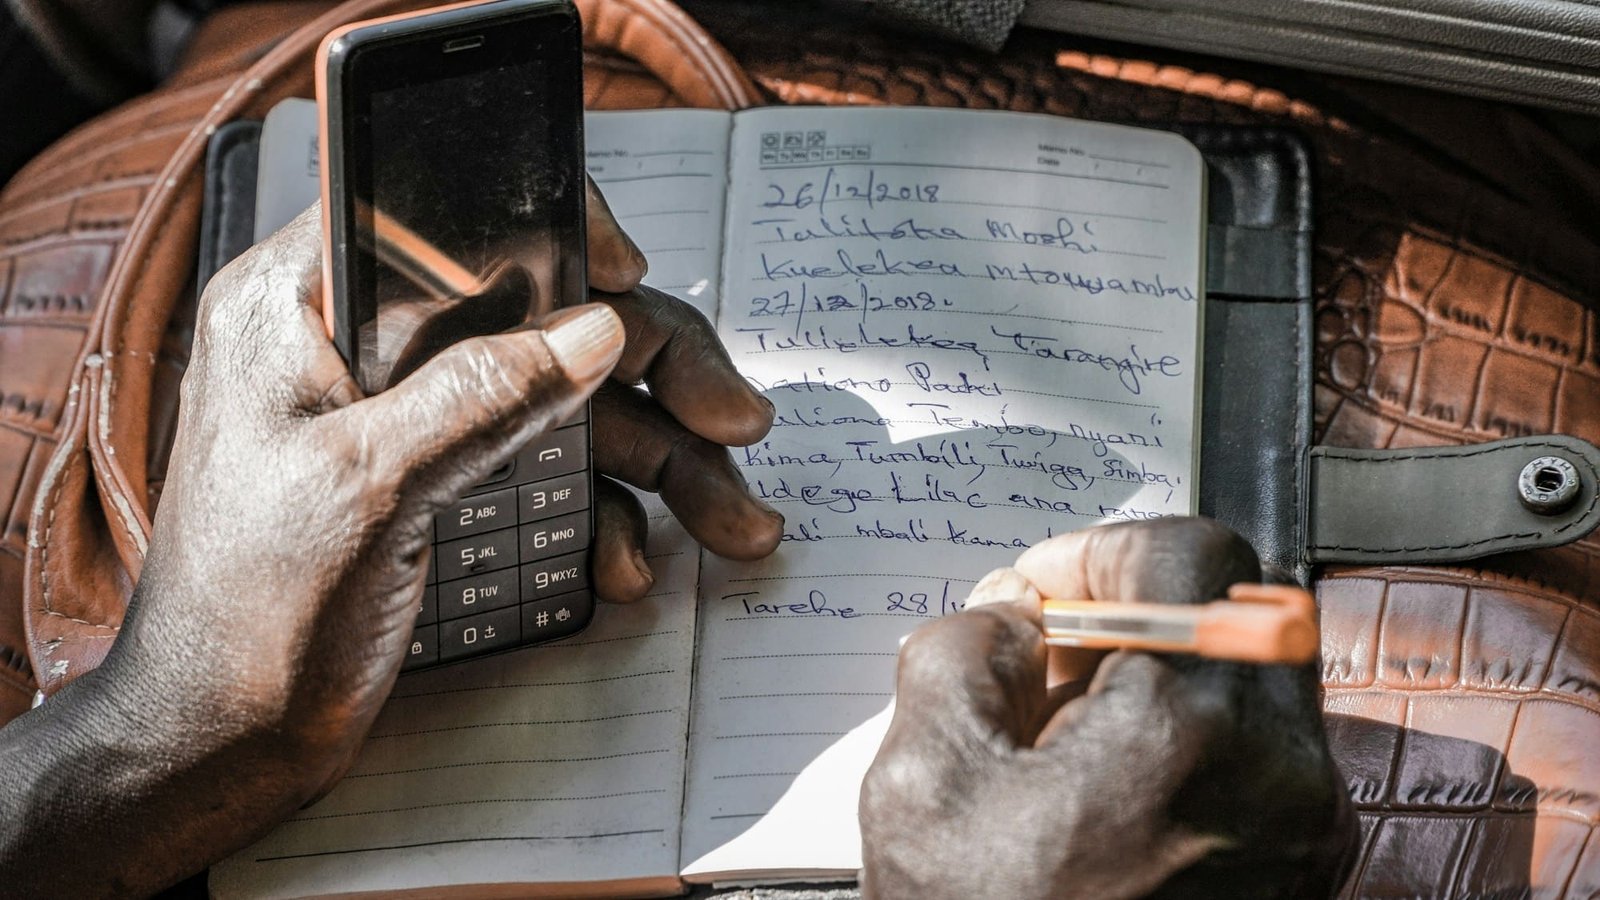 Memo No.
Date / /
Mo Tu We Th Fr Sa Su
26/12/2018
Talitoka Moshi
Kuelekea mtouwambu
27/12/2018.
Tulielekea Tarangire
Nationo Packi
Tembo, nyani
kima, Tumbili, Twiga, Simba,
ndege
mbali kama
Tarehe 28/1
2 ABC
3 DEF
5 JKL
6 MNO
8 TUV
9 WXYZ
0 ±
#